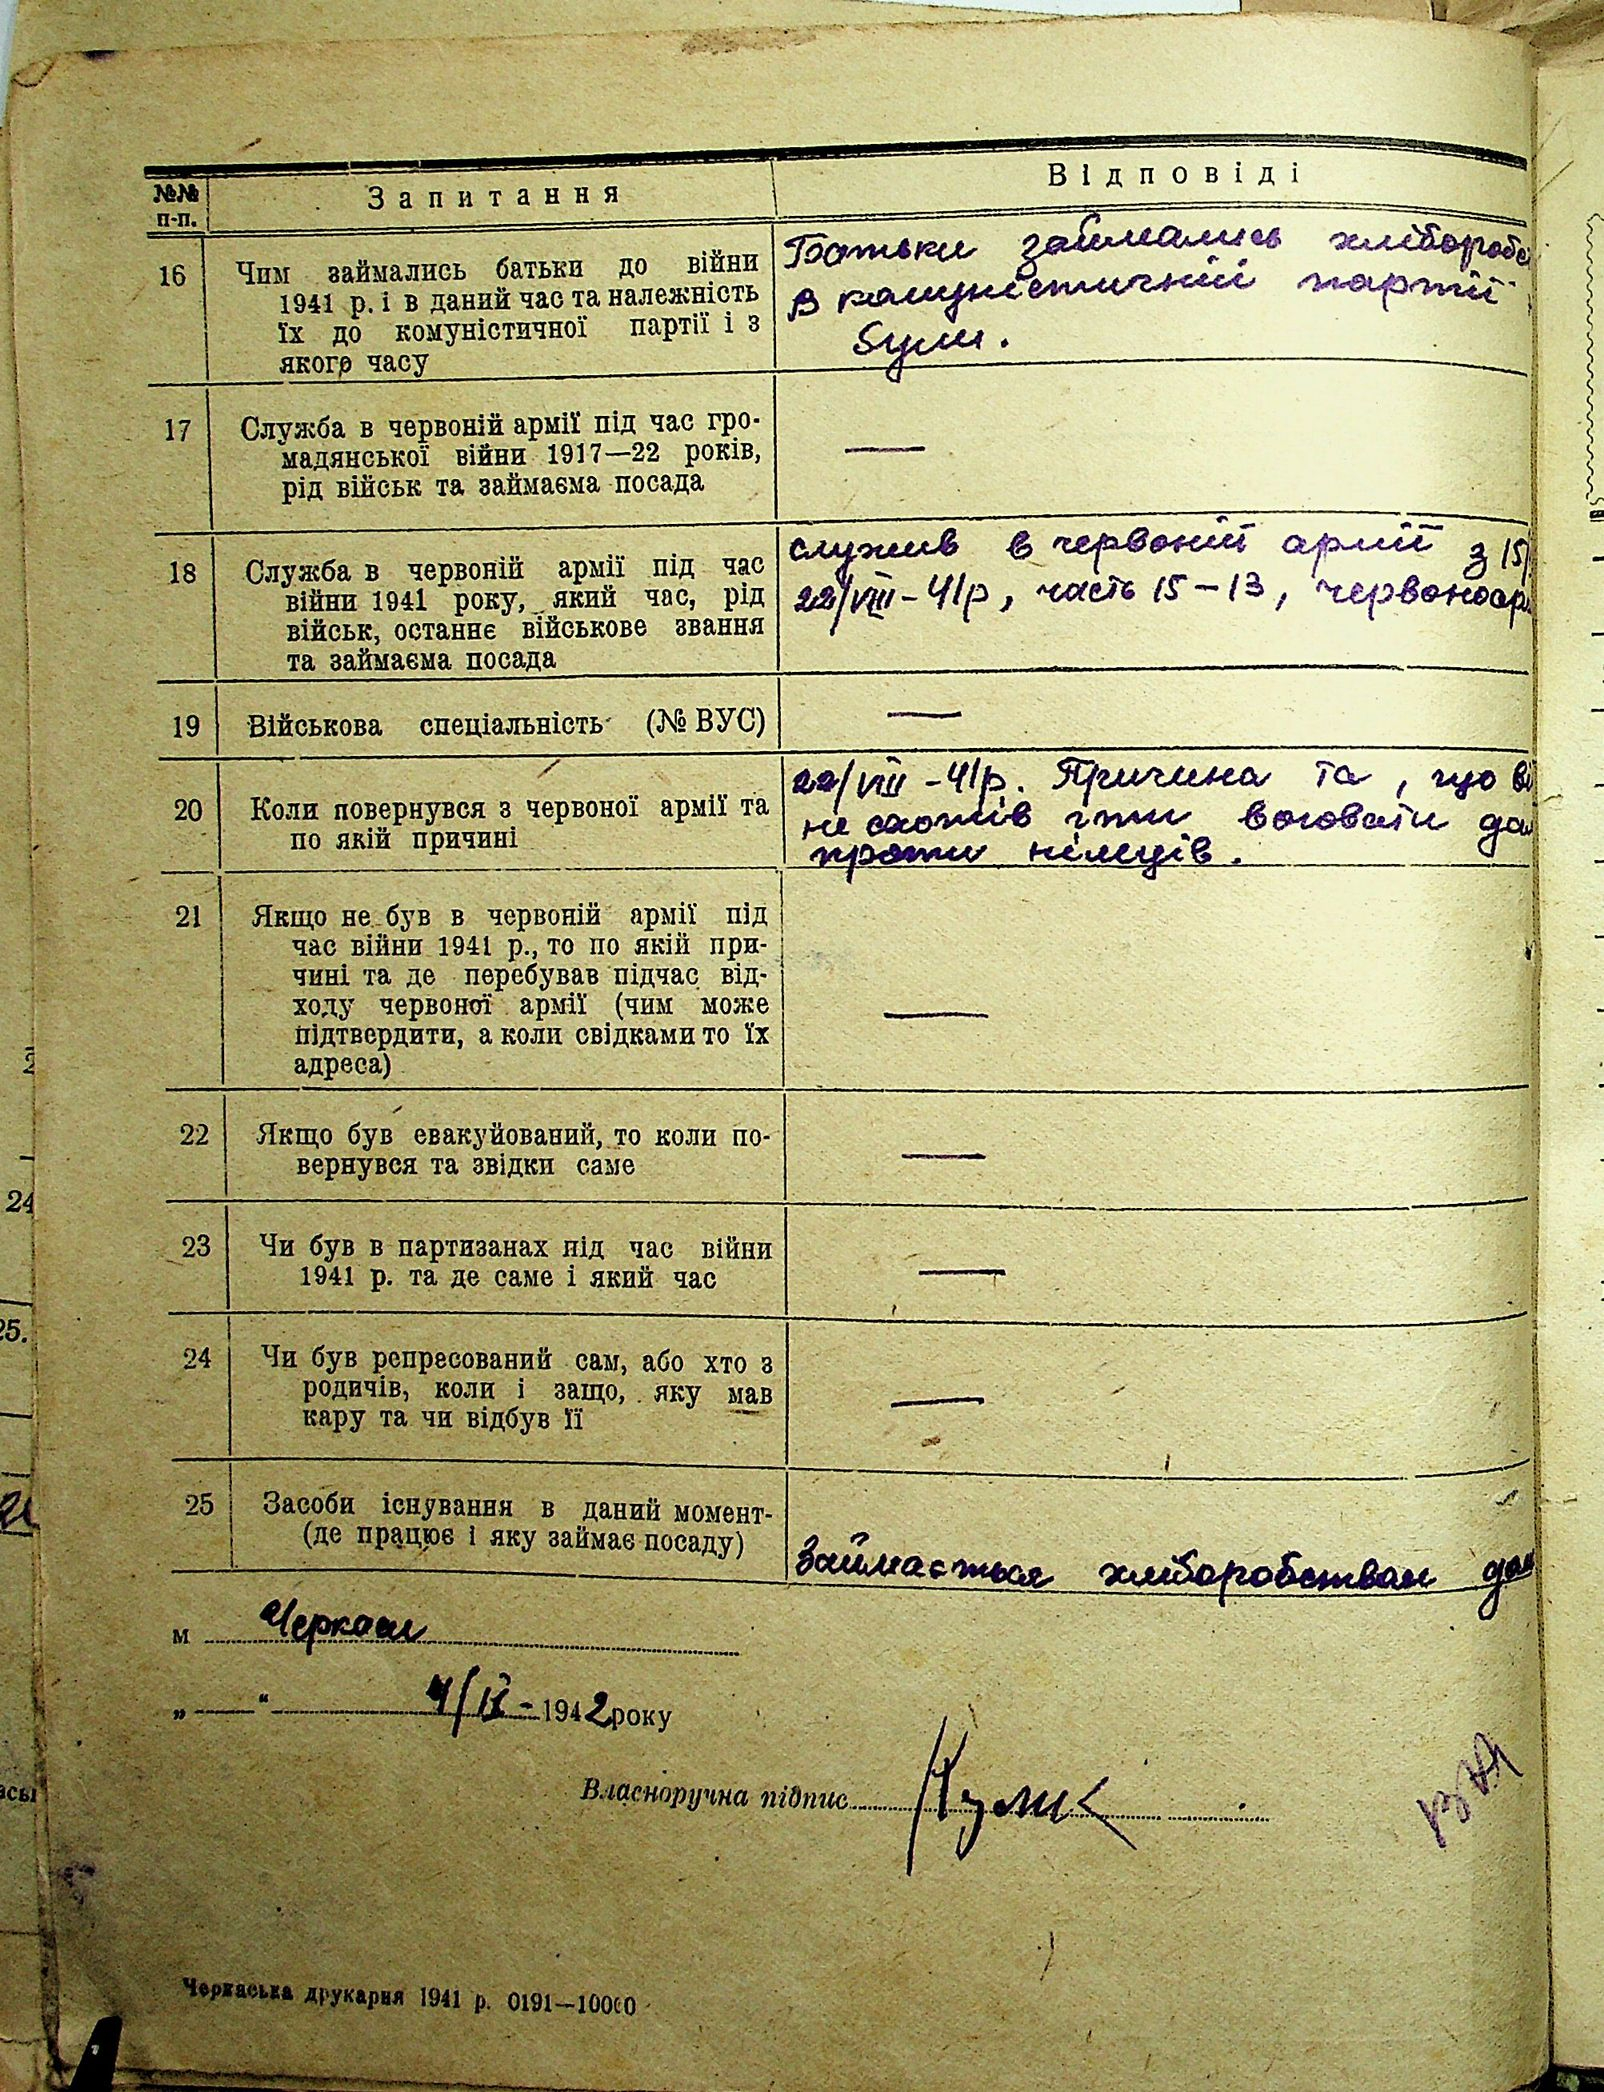 №№ п-п. Запитання Відповіді
16 Чим займались батьки до війни
1941 р. і в даний час та належність
їх до комуністичної партії і з
якого часу
Батьки займались хліборобс
в комуністичній партії
були.
17 Служба в червоній армії під час гро-
мадянської війни 1917—22 років,
рід військ та займаєма посада
—
18 Служба в червоній армії під час
війни 1941 року, який час, рід
військ, останнє військове звання
та займаєма посада
служив в червоній армії з 15/
22/VIII-41р, часть 15-13, червоноар
19 Військова спеціальність (№ ВУС)
—
20 Коли повернувся з червоної армії та
по якій причині
22/VIII-41р. Причина та, що ві
не схотів іти воювати да
проти німеців.
21 Якщо не був в червоній армії під
час війни 1941 р., то по якій при-
чині та де перебував підчас від-
ходу червоної армії (чим може
підтвердити, а коли свідками то їх
адреса)
—
22 Якщо був евакуйований, то коли по-
вернувся та звідки саме
—
23 Чи був в партизанах під час війни
1941 р. та де саме і який час
—
24 Чи був репресований сам, або хто з
родичів, коли і защо, яку мав
кару та чи відбув її
—
25 Засоби існування в даний момент-
(де працює і яку займає посаду)
Займається хліборобством да
м Черкаси
„ — “ 4/IX - 1942 року
Власноручна підпис
Черкаська друкарня 1941 р. 0191—10000
24
25.